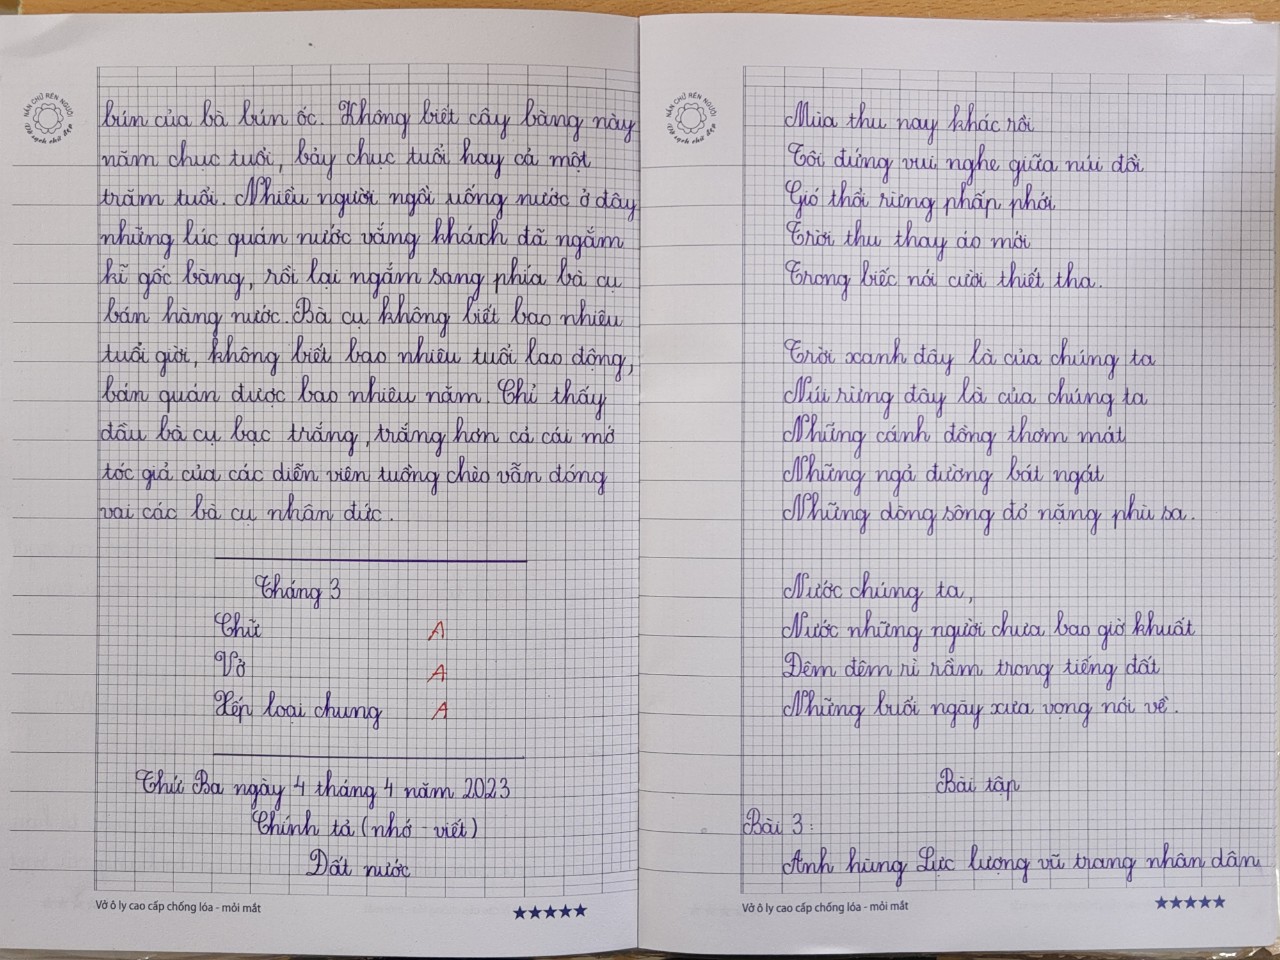 NẮN CHỮ RÈN NGƯỜI
Vở sạch chữ đẹp
bún của bà bún ốc. Không biết cây bàng này
năm chục tuổi, bảy chục tuổi hay cả một
trăm tuổi. Nhiều người ngồi uống nước ở đây
những lúc quán nước vắng khách đã ngắm
kĩ gốc bàng, rồi lại ngắm sang phía bà cụ
bán hàng nước. Bà cụ không biết bao nhiêu
tuổi giời, không biết bao nhiêu tuổi lao động,
bán quán được bao nhiêu năm. Chỉ thấy
đầu bà cụ bạc trắng, trắng hơn cả cái mớ
tóc giả của các diễn viên tuồng chèo vẫn đóng
vai các bà cụ nhân đức.
Tháng 3
Chữ A
Vở A
Xếp loại chung A
Thứ Ba ngày 4 tháng 4 năm 2023
Chính tả (nhớ - viết)
Đất nước
Vở ô ly cao cấp chống lóa - mỏi mắt
NẮN CHỮ RÈN NGƯỜI
Vở sạch chữ đẹp
Mùa thu nay khác rồi
Tôi đứng vui nghe giữa núi đồi
Gió thổi rừng phấp phới
Trời thu thay áo mới
Trong biếc nói cười thiết tha.
Trời xanh đây là của chúng ta
Núi rừng đây là của chúng ta
Những cánh đồng thơm mát
Những ngả đường bát ngát
Những dòng sông đỏ nặng phù sa.
Nước chúng ta,
Nước những người chưa bao giờ khuất
Đêm đêm rì rầm trong tiếng đất
Những buổi ngày xưa vọng nói về.
Bài tập
Bài 3:
Anh hùng Lực lượng vũ trang nhân dân
Vở ô ly cao cấp chống lóa - mỏi mắt